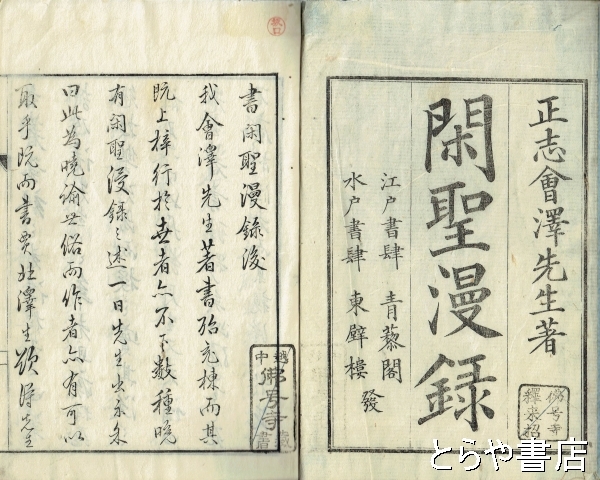 正志會澤先生著
閑聖漫録
江戸書肆 青藜閣
水戸書肆 東壁樓
發
佛号寺
釋来招
書閑聖漫録後
我會澤先生著書殆充棟而其
既上梓行於世者亦不下數種晩
有閑聖漫録之述一日先生出示余
曰此為曉諭世俗而作者亦有可以
取乎既而書賈北澤生欲得先生
越中
佛号寺
藏書
とらや書店